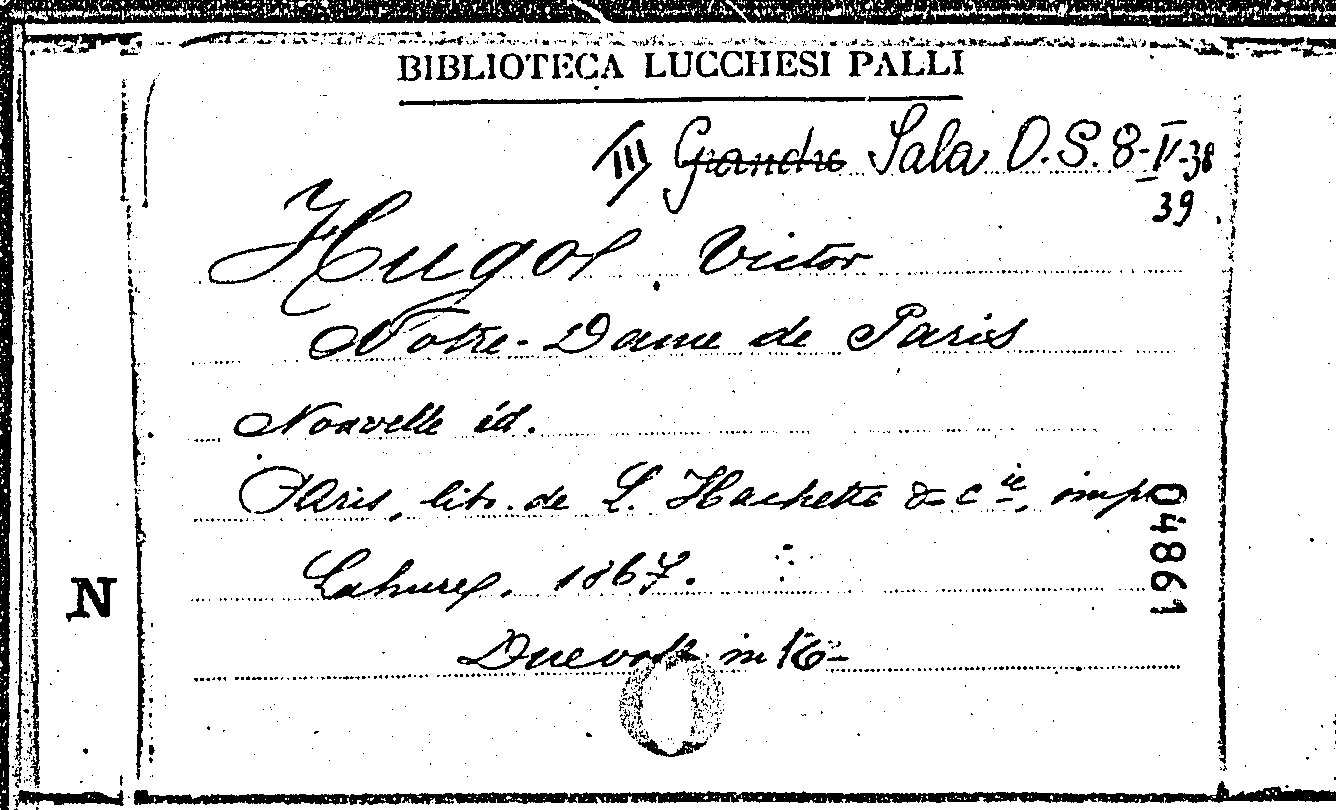 BIBLIOTECA LUCCHESI PALLI
III Grande Sala O.S. 8-IV-38
39
Hugo Victor
Notre-Dame de Paris
Nouvelle éd.
Paris, lib. de L. Hachette & Cie, impr.
Lahure, 1867.
Due voll. in 16-
N
04861